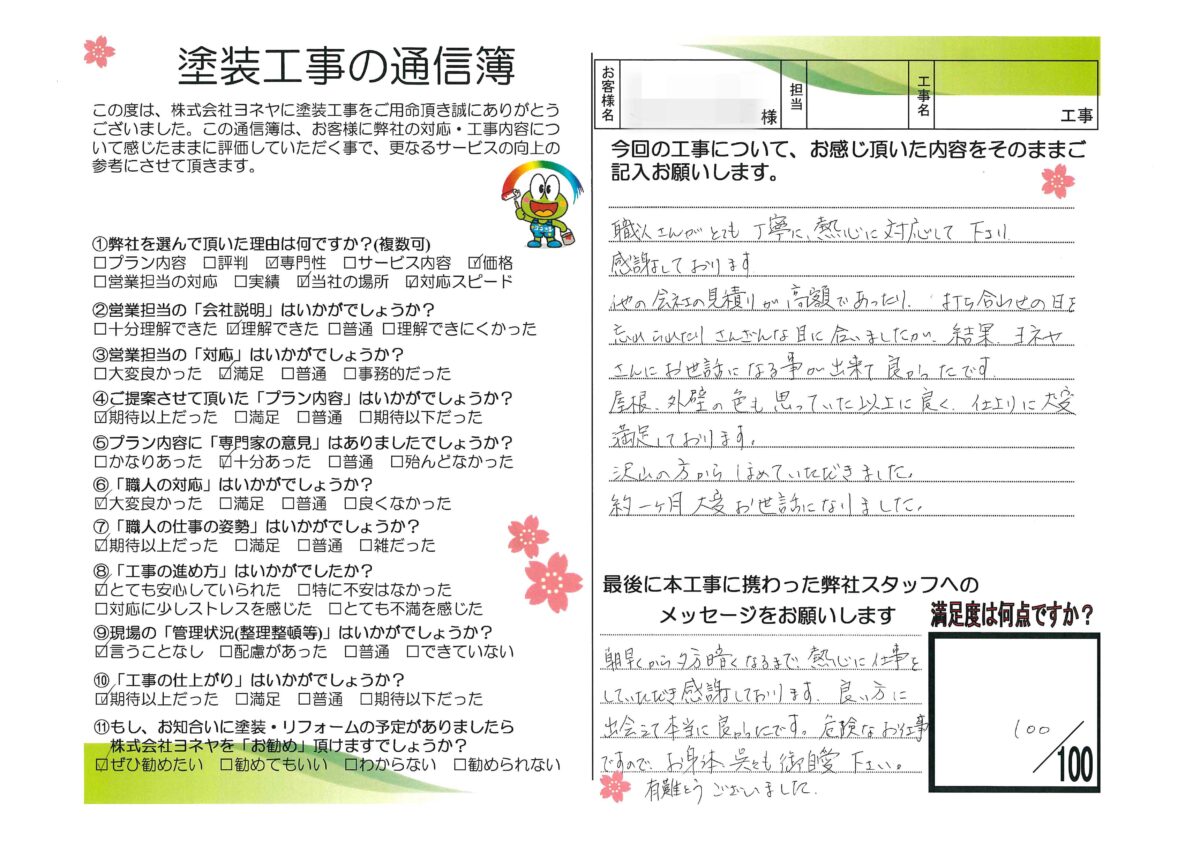 塗装工事の通信簿
この度は、株式会社ヨネヤに塗装工事をご用命頂き誠にありがとう
ございました。この通信簿は、お客様に弊社の対応・工事内容につ
いて感じたままに評価していただく事で、更なるサービスの向上の
参考にさせて頂きます。
①弊社を選んで頂いた理由は何ですか?(複数可)
☐プラン内容 ☐評判 ☑専門性 ☐サービス内容 ☑価格
☐営業担当の対応 ☐実績 ☑当社の場所 ☑対応スピード
②営業担当の「会社説明」はいかがでしょうか?
☐十分理解できた ☑理解できた ☐普通 ☐理解できにくかった
③営業担当の「対応」はいかがでしょうか?
☐大変良かった ☑満足 ☐普通 ☐事務的だった
④ご提案させて頂いた「プラン内容」はいかがでしょうか?
☑期待以上だった ☐満足 ☐普通 ☐期待以下だった
⑤プラン内容に「専門家の意見」はありましたでしょうか?
☐かなりあった ☑十分あった ☐普通 ☐殆んどなかった
⑥「職人の対応」はいかがでしょうか?
☑大変良かった ☐満足 ☐普通 ☐良くなかった
⑦「職人の仕事の姿勢」はいかがでしょうか?
☑期待以上だった ☐満足 ☐普通 ☐雑だった
⑧「工事の進め方」はいかがでしたか?
☑とても安心していられた ☐特に不安はなかった
☐対応に少しストレスを感じた ☐とても不満を感じた
⑨現場の「管理状況(整理整頓等)」はいかがでしょうか?
☑言うことなし ☐配慮があった ☐普通 ☐できていない
⑩「工事の仕上がり」はいかがでしょうか?
☑期待以上だった ☐満足 ☐普通 ☐期待以下だった
⑪もし、お知合いに塗装・リフォームの予定がありましたら
株式会社ヨネヤを「お勧め」頂けますでしょうか?
☑ぜひ勧めたい ☐勧めてもいい ☐わからない ☐勧められない
お客様名 様 担当 工事名 工事
今回の工事について、お感じ頂いた内容をそのままご
記入お願いします。
職人さんがとても丁寧に、熱心に対応して下さり
感謝しております
他の会社の見積りが高額であったり、打ち合わせの日を
忘れられたりさんざんな目に合いましたが、結果、ヨネヤ
さんにお世話になる事が出来て良かったです。
屋根、外壁の色も思っていた以上に良く、仕上りに大変
満足しております。
沢山の方からほめていただきました。
約一ヶ月大変お世話になりました。
最後に本工事に携わった弊社スタッフへの
メッセージをお願いします
朝早くから夕方暗くなるまで、熱心に仕事を
していただき感謝しております。良い方に
出会えて本当に良かったです。危険なお仕事
ですので、お身体、呉々も御自愛下さい。
有難とうございました。
満足度は何点ですか?
100/100